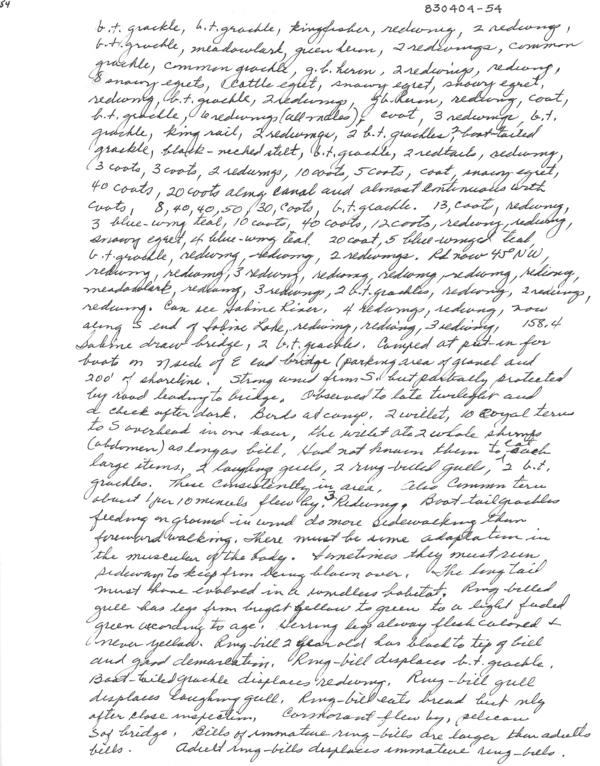 54
830404-54
b.t. grackle, b.t. grackle, kingfisher, redwing, 2 redwings,
b.t. grackle, meadowlark, green heron, 2 redwings, common
grackle, common grackle, g.b. heron, 2 redwings, redwing,
8 snowy egrets, cattle egret, snowy egret, snowy egret,
redwing, b.t. grackle, 2 redwings, gb. heron, redwing, coot,
b.t. grackle, 6 redwings (all males), coot, 3 redwings, b.t.
grackle, king rail, 2 redwings, 2 b.t. grackles, boat-tailed
grackle, black-necked stilt, b.t. grackle, 2 redtails, redwing,
3 coots, 3 coots, 2 redwings, 10 coots, 5 coots, coot, snowy egret,
40 coots, 20 coots along canal and almost continuous with
coots, 8, 40, 40, 50, 30, coots, b.t. grackle. 13, coot, redwing,
3 blue-wing teal, 10 coots, 40 coots, 12 coots, redwing, redwing,
snowy egret, 4 blue-wing teal. 20 coot, 5 blue-winged teal,
b.t. grackle, redwing, redwing, 2 redwings. Rd now 45° NW,
redwing, redwing, 3 redwing, redwing, redwing, redwing, redwing,
meadowlark, redwing, 3 redwings, 2 b.t. grackles, redwing, 2 redwings,
redwing. Can see Sabine River, 4 redwings, redwing, now
along S end of Sabine Lake, redwing, redwing, 3 redwing, 158.4
Sabine draw bridge, 2 b.t. grackles. Camped at put-in for
boats on N side of E end bridge (parking area of gravel and
200' of shoreline. Strong wind from S. but partially protected
by road leading to bridge. Observed to late twilight and
a check after dark. Birds at camp. 2 willet, 10 royal terns
to S overhead in one hour, the willet ate 2 whole shrimps
(abdomen) as long as bill, Had not known them to eat such
large items, 2 laughing gulls, 2 ring-billed gulls, 2 b.t.
grackles. These consistently in area, also Common tern
about 1 per 10 minutes flew by. 3 Redwing. Boat-tail grackles
feeding on ground in wind do more sidewalking than
foreward walking. There must be some adaptation in
the muscular of the body. Sometimes they must run
sideways to keep from being blown over. The long tail
must have evolved in a windless habitat. Ring-billed
gull has legs from bright yellow to green to a light faded
green according to age, herring leg always flesh colored &
never yellow. Ring-bill 2 year old has black to tip of bill
and good demarcation. Ring-bill displaces b.t. grackle.
Boat-tailed grackle displaces redwing. Ring-bill gull
displaces laughing gull. Ring-bill eats bread but only
after close inspection, Cormorant flew by, pelican
S of bridge. Bills of immature ring-bills are larger than adults
bills. Adult ring-bills displaces immature ring-bills.